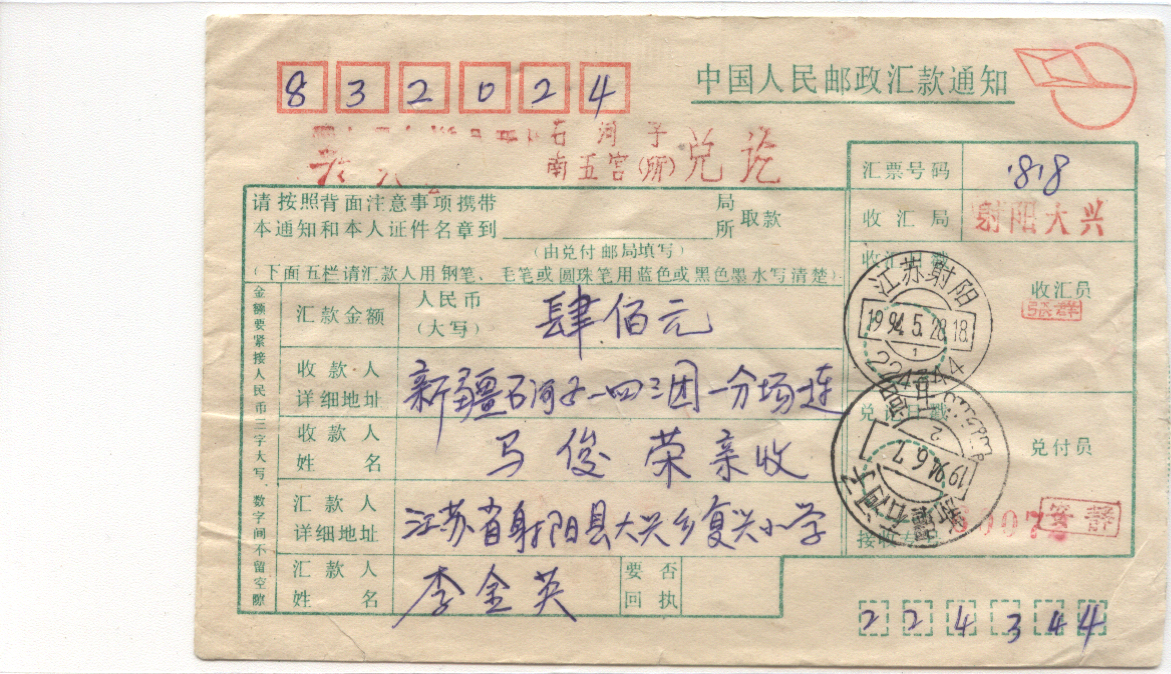 832024
中国人民邮政汇款通知
石河子
南五宫(所)兑讫
汇票号码 818
请按照背面注意事项携带
本通知和本人证件名章到 局所 取款
(由兑付邮局填写)
收汇局 射阳大兴
(下面五栏请汇款人用钢笔、毛笔或圆珠笔用蓝色或黑色墨水写清楚)
收汇员
張群
江苏射阳
1994.5.28.18
1
金额要紧接人民币三字大写,数字间不留空隙
汇款金额 人民币(大写) 肆佰元
收款人详细地址 新疆石河子一四三团一分场一连
收款人姓名 马俊荣亲收
兑付员
1994.6.7
2
新疆石河子
汇款人详细地址 江苏省射阳县大兴乡复兴小学
汇款人姓名 李金英
要否回执
224344